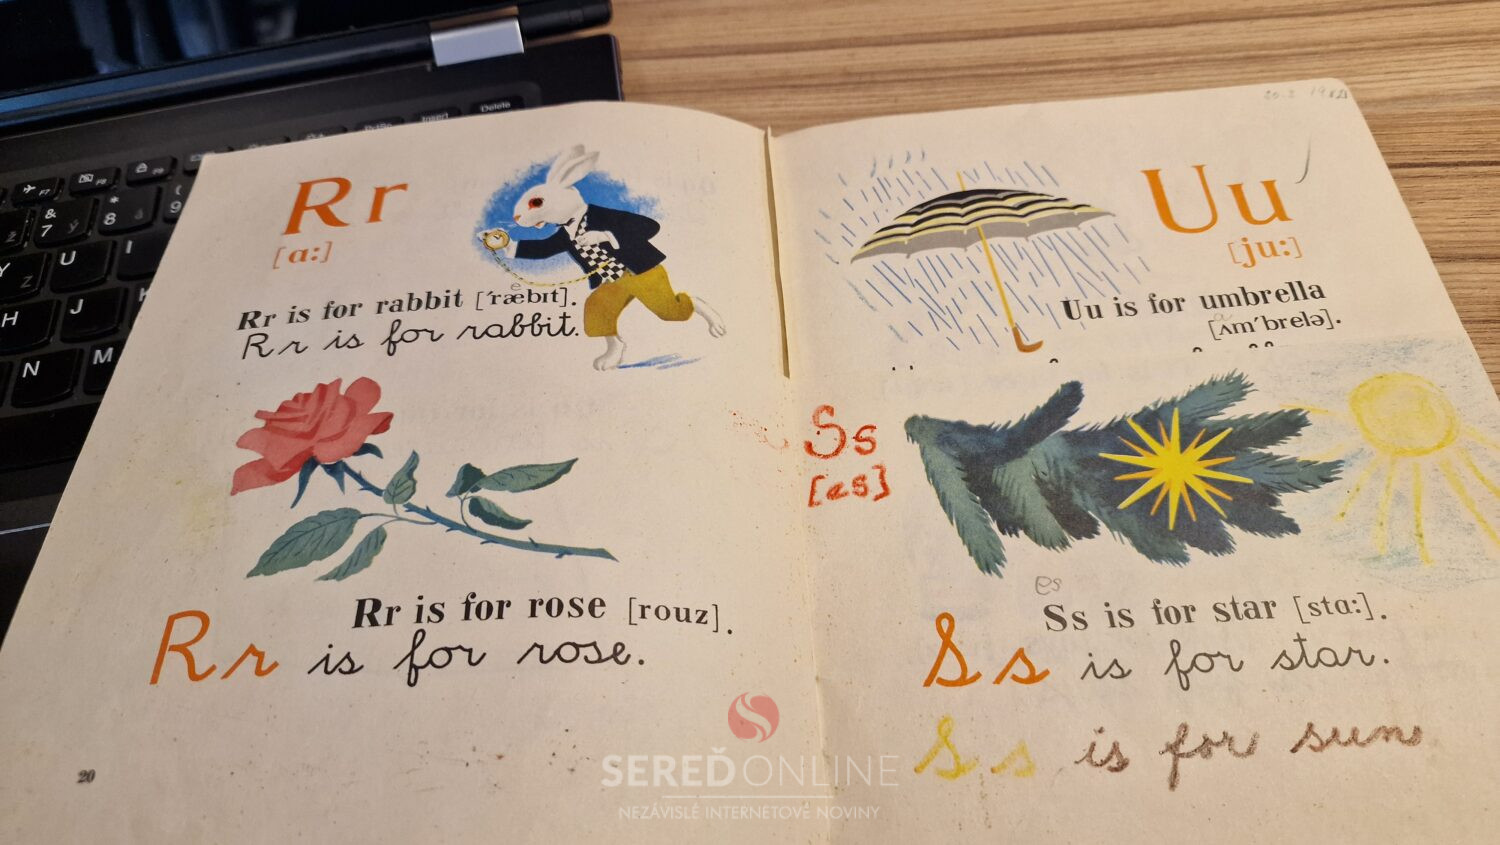 Rr
[ɑ:]
Rr is for rabbit ['ræbɪt].
e
Rr is for rabbit.
Rr is for rose [rouz].
Rr is for rose.
20
Uu
[ju:]
Uu is for umbrella
a
[ʌm'brelə].
Ss
[es]
es
Ss is for star [stɑ:].
Ss is for star.
Ss is for sun
SEREĎONLINE
NEZÁVISLÉ INTERNETOVÉ NOVINY
Delete
Insert
F7
&
7
ý
*
8
á
9
Y
Z
U
I
H
J
N
M